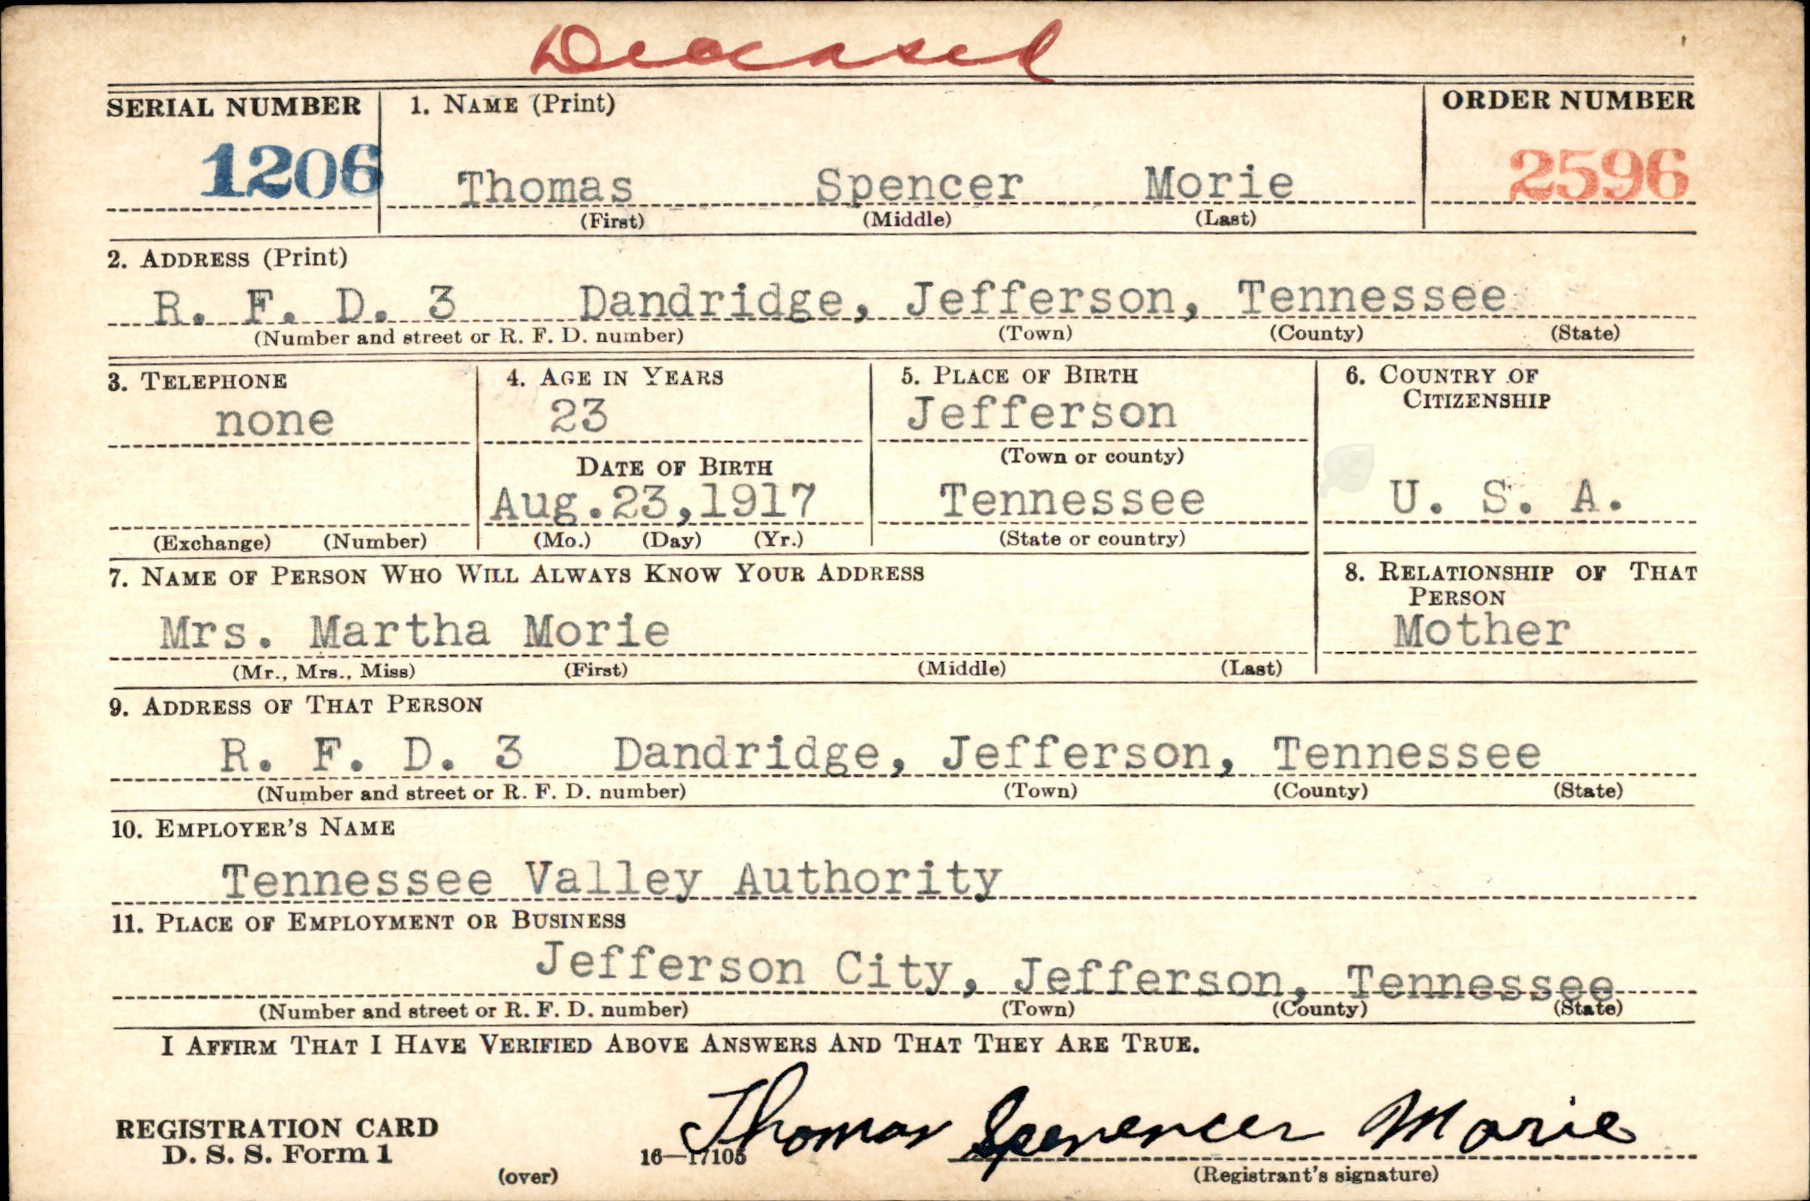 Deceased
SERIAL NUMBER 1. NAME (Print) ORDER NUMBER
1206 Thomas Spencer Morie 2596
(First) (Middle) (Last)
2. ADDRESS (Print)
R. F. D. 3 Dandridge, Jefferson, Tennessee
(Number and street or R. F. D. number) (Town) (County) (State)
3. TELEPHONE 4. AGE IN YEARS 5. PLACE OF BIRTH 6. COUNTRY OF
CITIZENSHIP
none 23 Jefferson
(Town or county)
DATE OF BIRTH
Aug.23,1917 Tennessee U. S. A.
(Exchange) (Number) (Mo.) (Day) (Yr.) (State or country)
7. NAME OF PERSON WHO WILL ALWAYS KNOW YOUR ADDRESS 8. RELATIONSHIP OF THAT
PERSON
Mrs. Martha Morie Mother
(Mr., Mrs., Miss) (First) (Middle) (Last)
9. ADDRESS OF THAT PERSON
R. F. D. 3 Dandridge, Jefferson, Tennessee
(Number and street or R. F. D. number) (Town) (County) (State)
10. EMPLOYER'S NAME
Tennessee Valley Authority
11. PLACE OF EMPLOYMENT OR BUSINESS
Jefferson City, Jefferson, Tennessee
(Number and street or R. F. D. number) (Town) (County) (State)
I AFFIRM THAT I HAVE VERIFIED ABOVE ANSWERS AND THAT THEY ARE TRUE.
Thomas Spenencer Morie
REGISTRATION CARD
D. S. S. Form 1 16—17105
(over) (Registrant's signature)